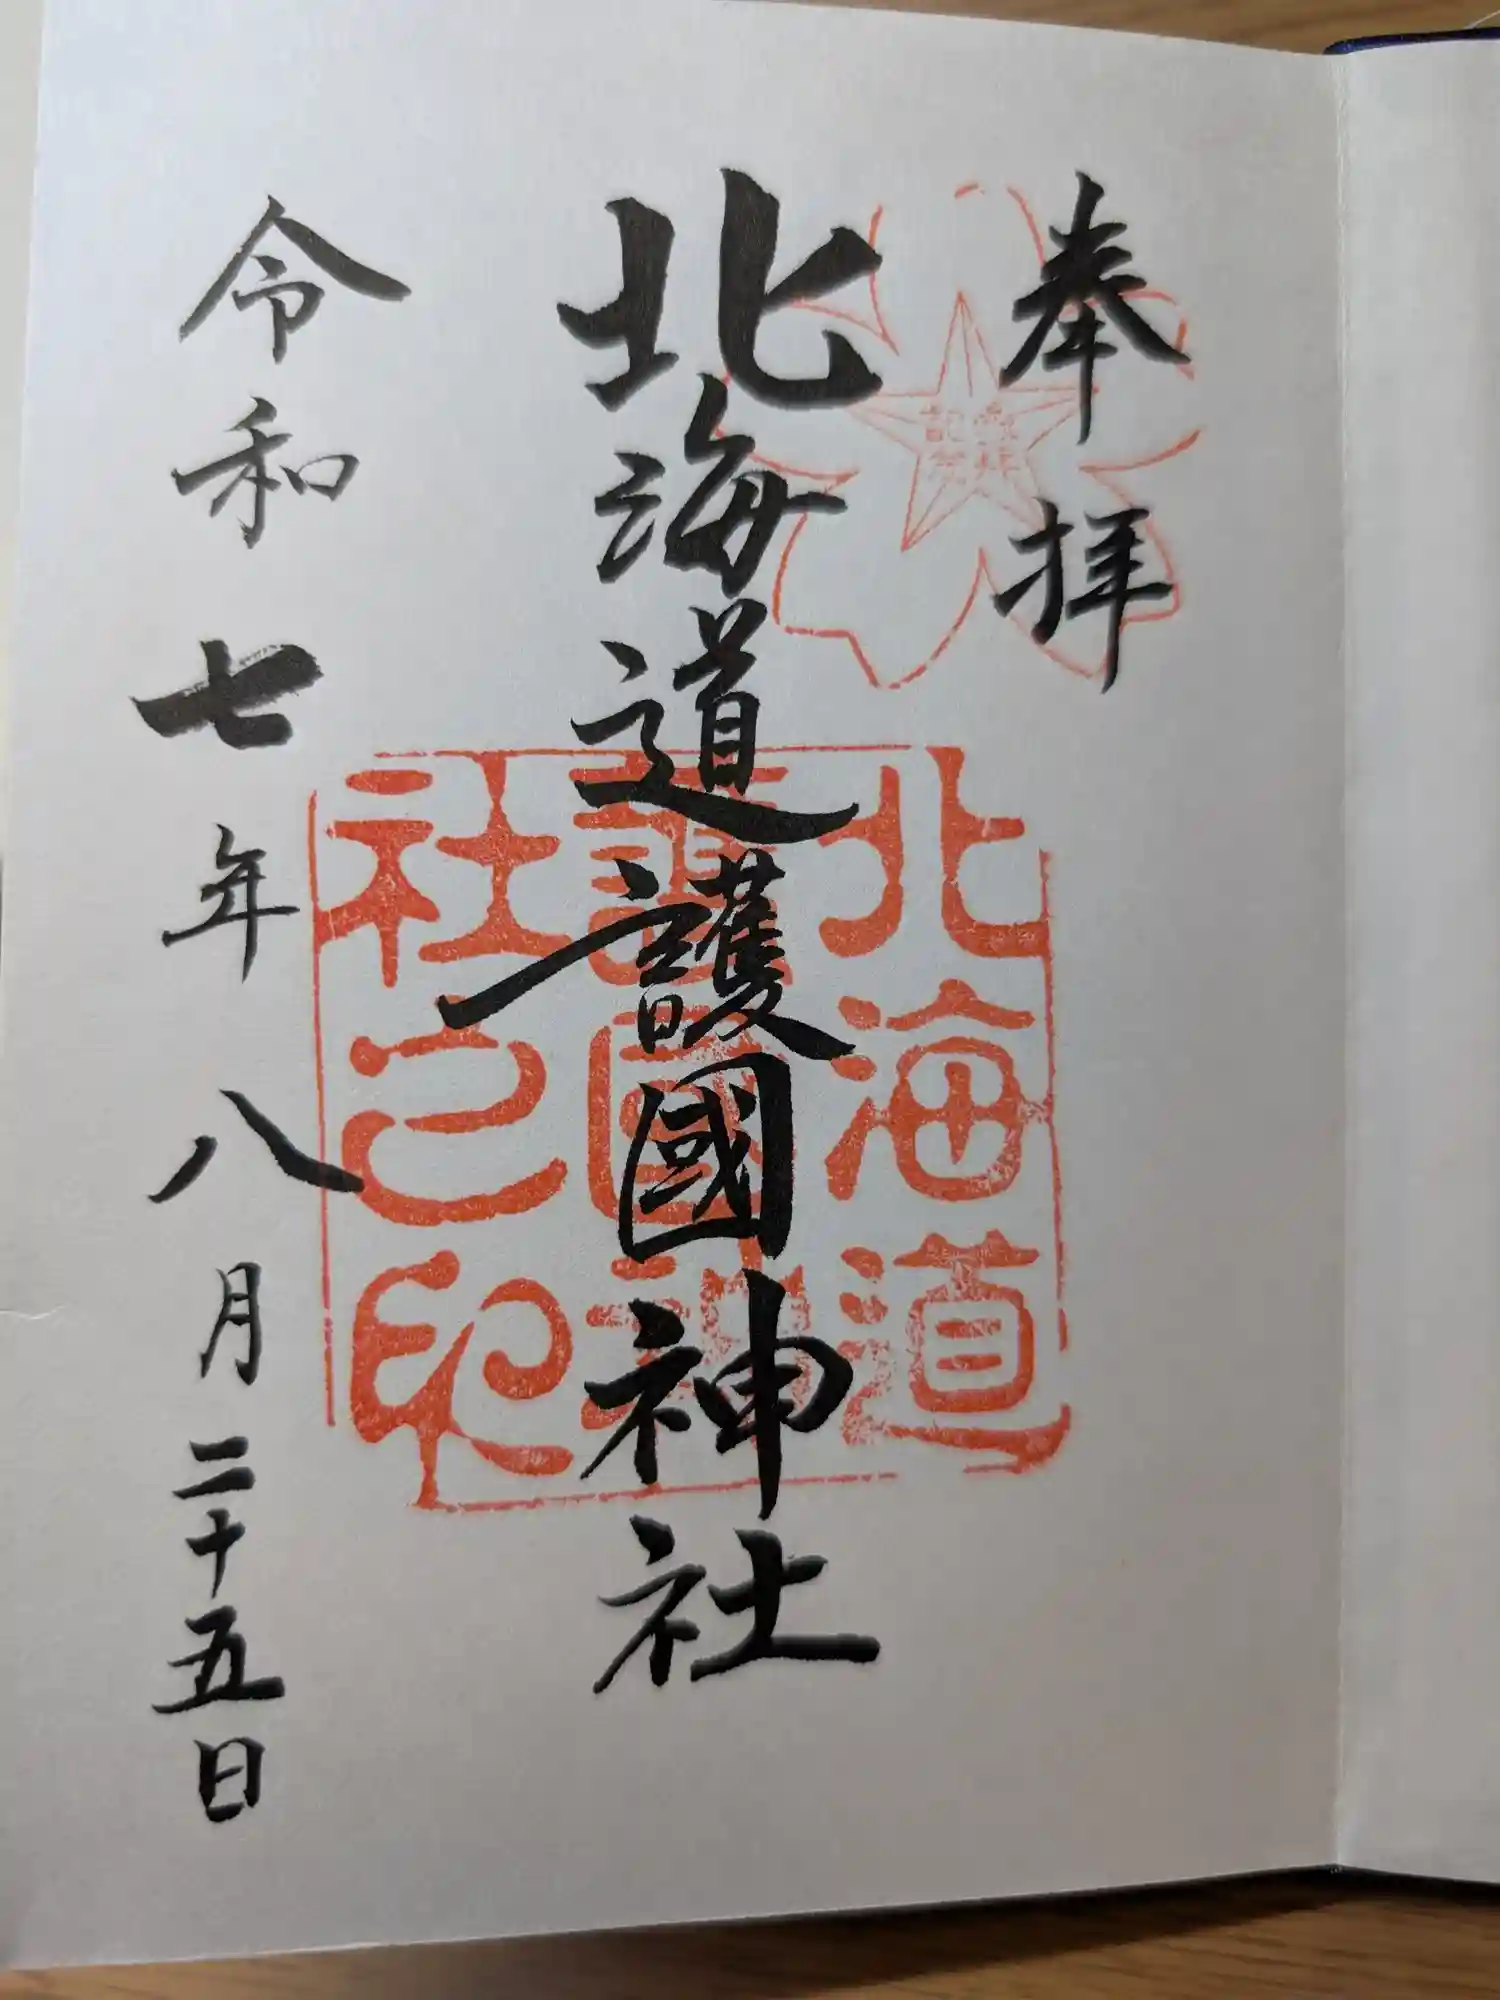 奉拝
北海道護國神社
令和七年八月二十五日
北海道
護國神
社之印
參拝
記念